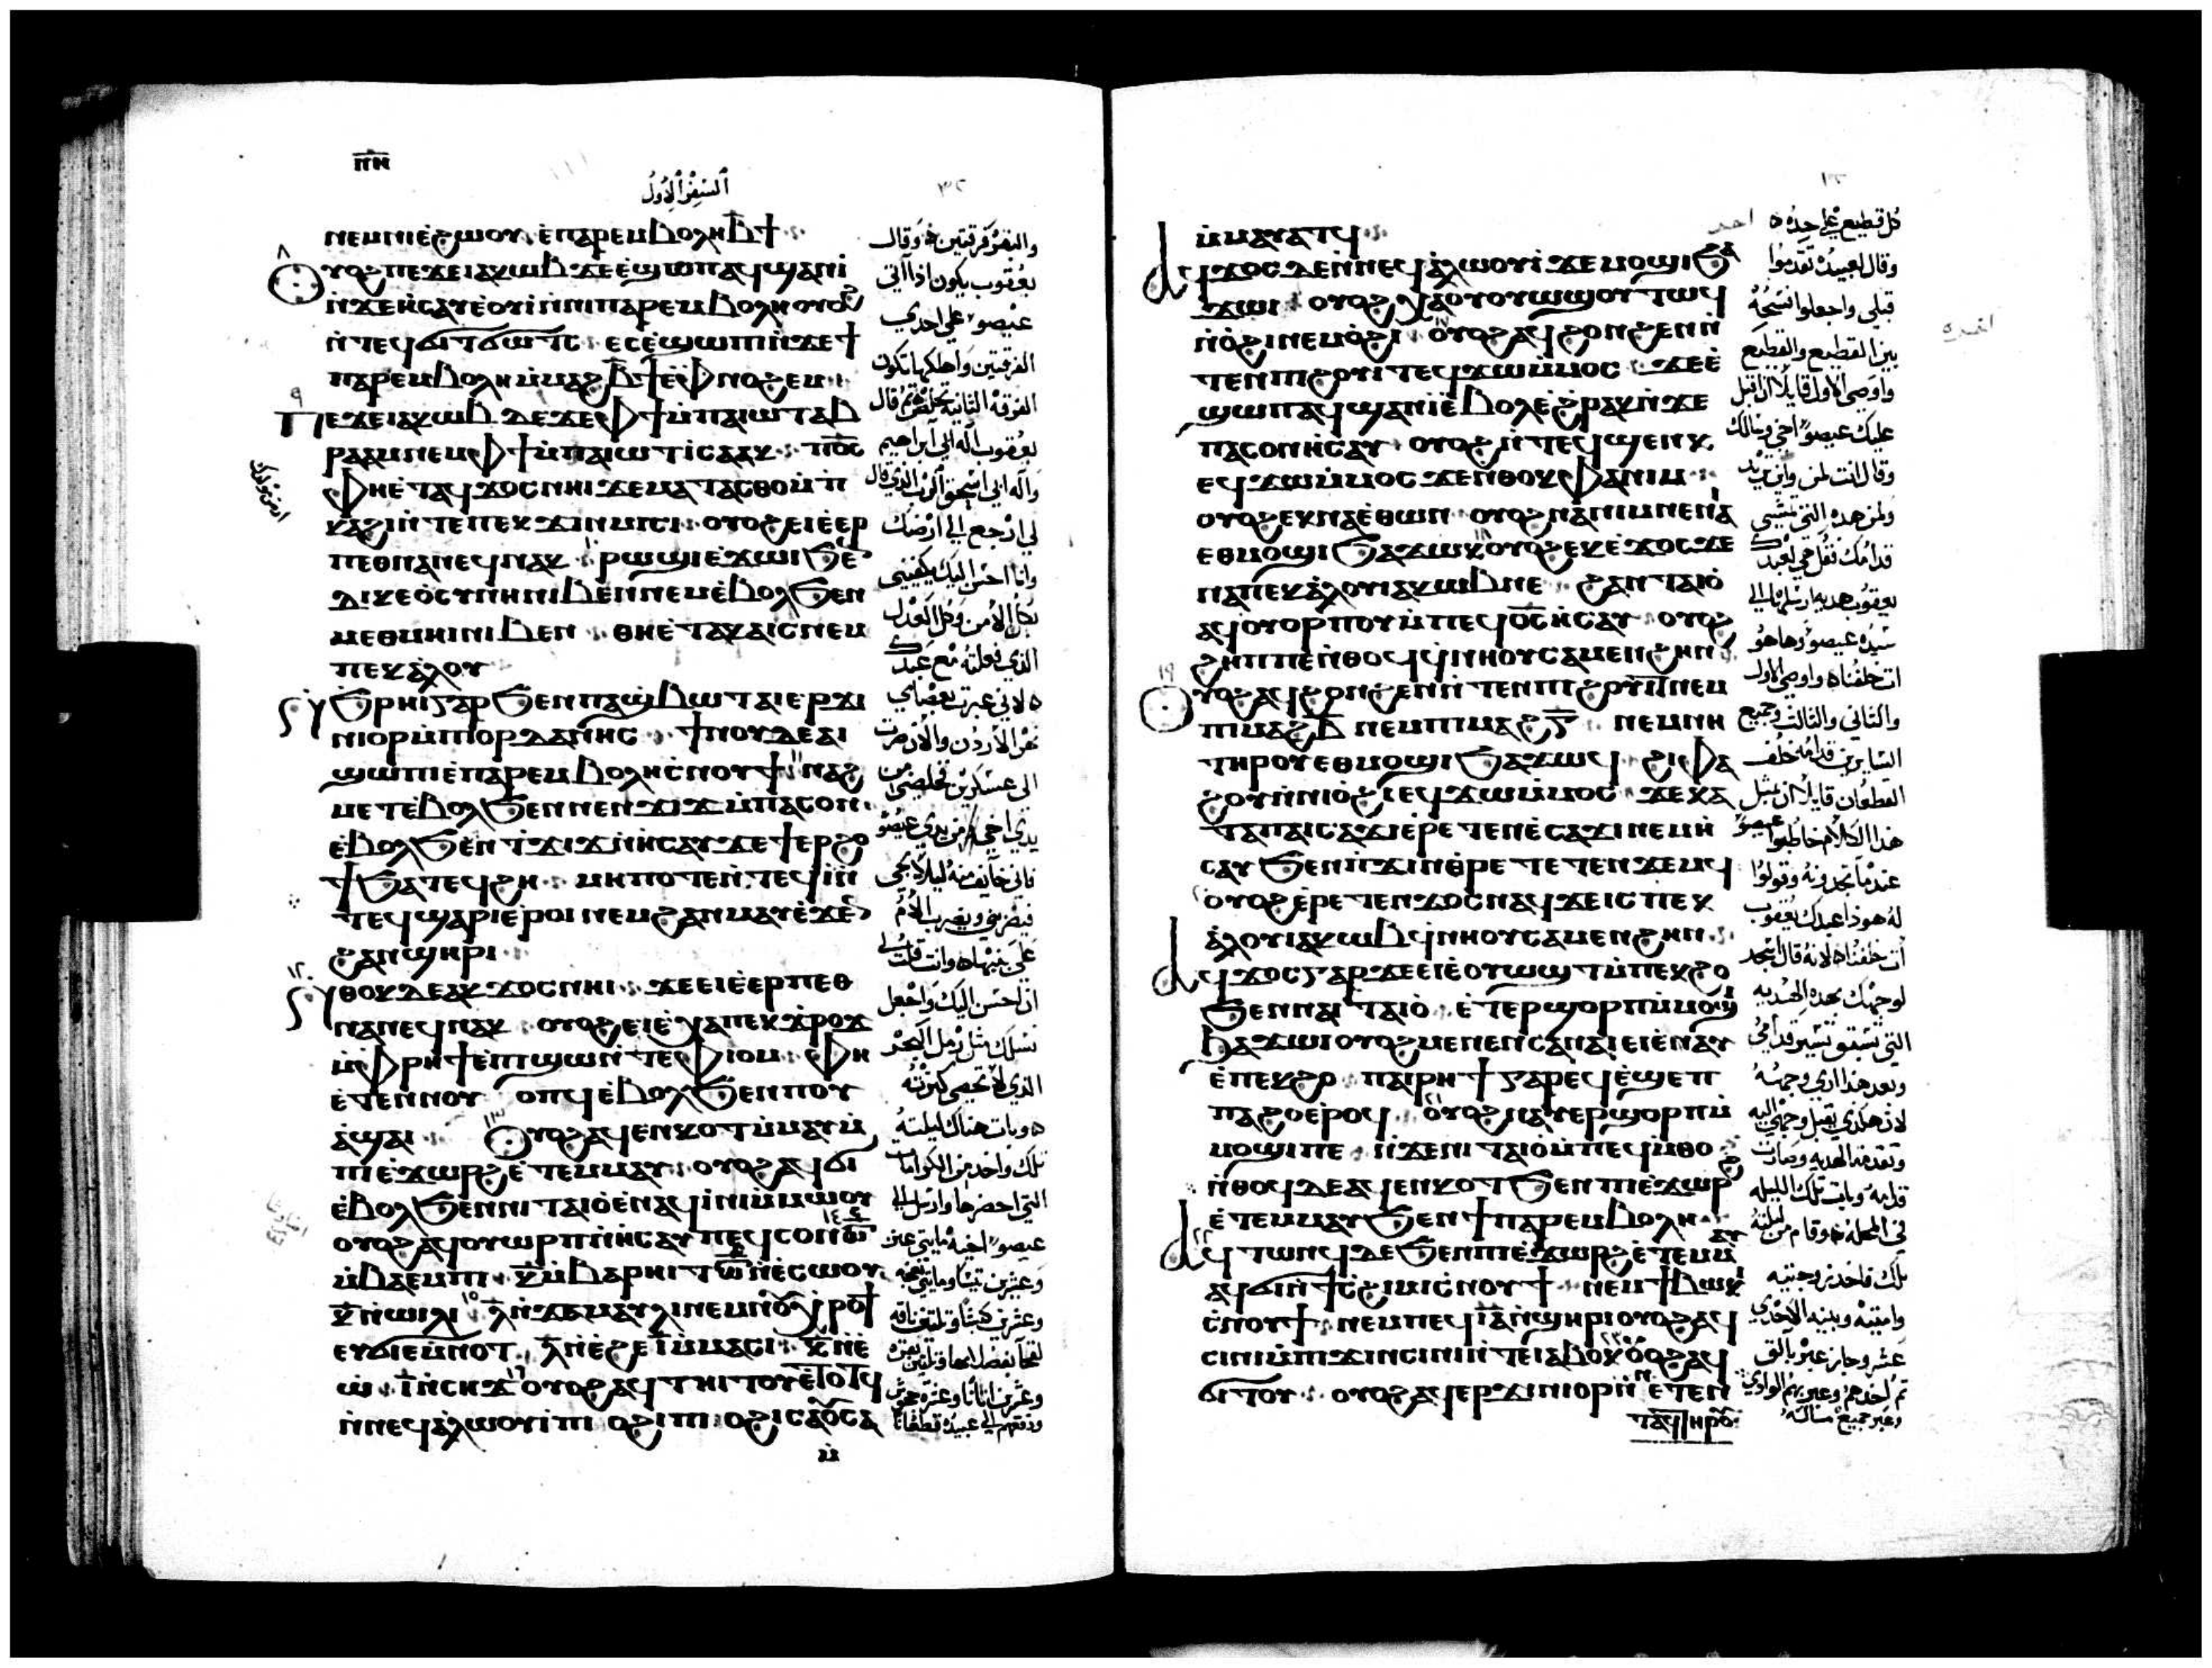 ⲡⲏ
السفر الاول
ⲛⲉⲙⲛⲓⲉ̀ϩⲱⲟⲩ ⲉ̀ⲡⲁⲣⲉⲙⲃⲟⲗⲏ ⲃ̅ϯ
ⲟⲩⲟϩ ⲡⲉϫⲉ ⲓⲁⲕⲱⲃ ϫⲉ ⲉ̀ϣⲱⲡ ⲁϥϣⲁⲛⲓ̀
ⲛ̀ϫⲉ ⲏⲥⲁⲩ ⲉ̀ⲟⲩⲓ̀ ⲛ̀ⲛⲓⲡⲁⲣⲉⲙⲃⲟⲗⲏ ⲟⲩⲟϩ
ⲛ̀ⲧⲉϥϭⲓⲧϭⲱⲧⲥ ⲉⲥⲉ̀ϣⲱⲡⲓ ⲛ̀ϫⲉ ϯ
ⲡⲁⲣⲉⲙⲃⲟⲗⲏ ⲙ̀ⲙⲁϩ ⲃ̅ϯ ⲉ̀ⲫⲛⲟϩⲉⲙ
ⲡⲉϫⲉ ⲓⲁⲕⲱⲃ ⲇⲉ ϫⲉ ⲫϯ ⲙ̀ⲡⲁⲓⲱⲧ ⲁⲃ
ⲣⲁⲁⲙ ⲛⲉⲙ ⲫϯ ⲙ̀ⲡⲁⲓⲱⲧ ⲓ̀ⲥⲁⲁⲕ ⲡⲟ̅ⲥ̅
ⲫⲏⲉ̀ⲧⲁϥϫⲟⲥ ⲛⲏⲓ ϫⲉ ⲙⲁⲧⲁⲥⲑⲟ ⲙ̀ⲡ
ⲕⲁϩⲓ ⲛ̀ⲧⲉ ⲡⲉⲕϫⲓⲛⲙⲓⲥⲓ ⲟⲩⲟϩ ⲉⲓⲉ̀ⲉⲣ
ⲡⲉⲑⲛⲁⲛⲉϥ ⲛⲁⲕ ⲣⲱϣⲓ ⲉ̀ϫⲱⲓ ϧⲉⲛ
ⲇⲓⲕⲉⲟ̀ⲥⲩⲛⲏ ⲛⲓⲃⲉⲛ ⲛⲉⲙ ⲉ̀ⲃⲟⲗϧⲉⲛ
ⲙⲉⲑⲙⲏⲓ ⲛⲓⲃⲉⲛ ⲑⲏⲉ̀ⲧⲁⲕⲁⲓⲥ ⲛⲉⲙ
ⲡⲉⲕⲁ̀ⲗⲟⲩ
ϧⲣⲏⲓ ⲅⲁⲣ ϧⲉⲛ ⲡⲁϣ̀ⲃⲱⲧ ⲁⲓⲉⲣϫⲓ
ⲛⲓⲟⲣ ⲙ̀ⲡⲓⲟⲣⲇⲁⲛⲏⲥ ϯⲛⲟⲩ ⲇⲉ ⲁⲓ
ϣⲱⲡⲓ ⲉ̀ⲡⲁⲣⲉⲙⲃⲟⲗⲏ ⲥ̀ⲛⲟⲩϯ ⲛⲁϩ
ⲙⲉⲧ ⲉ̀ⲃⲟⲗϧⲉⲛ ⲛⲉⲛϫⲓϫ ⲙ̀ⲡⲁⲥⲟⲛ
ⲉ̀ⲃⲟⲗϧⲉⲛ ⲧϫⲓϫ ⲛ̀ⲏⲥⲁⲩ ϫⲉ ϯⲉⲣϩⲟ
ϯϧⲁⲧⲉϥϩⲏ ⲙⲏⲡⲟⲧⲉ ⲛ̀ⲧⲉϥⲓ̀ ⲛ̀
ⲧⲉϥϣⲁⲣⲓ ⲉ̀ⲣⲟⲓ ⲛⲉⲙ ϩⲁⲛⲙⲁⲩ ⲉ̀ϫⲉⲛ
ϩⲁⲛϣⲏⲣⲓ
ⲛⲑⲟⲕ ⲇⲉ ⲁⲕϫⲟⲥ ⲛⲏⲓ ϫⲉ ⲉⲓⲉ̀ⲉⲣⲡⲉⲑ
ⲛⲁⲛⲉϥ ⲛⲁⲕ ⲟⲩⲟϩ ⲉⲓⲉ̀ⲭⲁ ⲡⲉⲕϫ̀ⲣⲟϫ
ⲙ̀ⲫⲣⲏϯ ⲙ̀ⲡϣⲱ ⲛ̀ⲧⲉ ⲫⲓⲟⲙ ⲫⲏ
ⲉ̀ⲧⲉⲛⲛⲟⲩⲟⲡϥ ⲉ̀ⲃⲟⲗϧⲉⲛ ⲡⲟⲩ
ⲁ̀ϣⲁⲓ ⲟⲩⲟϩ ⲁϥⲉⲛⲕⲟⲧ ⲙ̀ⲙⲁⲩ ⲙ̀
ⲡⲓⲉ̀ϫⲱⲣϩ ⲉ̀ⲧⲉⲙⲙⲁⲩ ⲟⲩⲟϩ ⲁϥϭⲓ
ⲉ̀ⲃⲟⲗϧⲉⲛ ⲛⲓⲧⲁⲓⲟ ⲉ̀ⲛⲁϥⲓ̀ⲛⲓ ⲙ̀ⲙⲱⲟⲩ
ⲟⲩⲟϩ ⲁϥⲟⲩⲱⲣⲡ ⲛ̀ⲏⲥⲁⲩ ⲡⲉϥⲥⲟⲛ
ⲙ̀ⲃⲁⲉⲙⲡⲓ ⲕ̅ ⲙ̀ⲃⲁⲣⲏⲓⲧ ⲛ̀ⲉⲥⲱⲟⲩ
ⲕ̅ ⲛ̀ⲱⲓⲗⲓ ⲗ̅ ⲛ̀ϫⲁⲙⲁⲩⲗⲓ ⲛⲉⲙ
ⲉⲩϭⲓⲉⲙⲛⲟⲧ ⲙ̅ ⲛ̀ⲉ̀ϩⲉ ⲓ̅ ⲙ̀ⲙⲁⲥⲓ ⲕ̅ ⲛ̀ⲉ̀
ⲱ̀ ⲓ̅ ⲛ̀ⲥⲏϫ ⲟⲩⲟϩ ⲁϥⲧⲏⲓⲧⲟⲩ ⲉ̀ⲧⲟⲧϥ
ⲛ̀ⲛⲉϥⲁ̀ⲗⲱⲟⲩⲓ̀ ⲡⲓⲟϩⲓ ⲡⲓⲟϩⲓ ⲥⲁⲟⲩⲥⲁ
ⲙ̀
والبقر فرقتين وقال
يعقوب يكون اذا اتى
عيصو على احدي
الفرقتين واهلكها تكون
الفرقة الثانية تخلص ثم قال
يعقوب اله ابي ابراهيم
واله ابي اسحق الرب الذي قال
لي ارجع الى ارضك
وانا احسن اليك يكفيني
بكل الامن وكل العدل
الذي فعلته مع عبدك
لاني عبرت بعصاي
نهر الاردن والان صرت
الى عسكرين فخلصني من
يدي اخي من يدي عيصو
فاني خايف منه ليلا يجي
فيضربني ويضرب الام
على بنيها وانت قلت لي
اني احسن اليك واجعل
نسلك مثل رمل البحر
الذي لا تحصى كثرته
وبات هناك ليلته
تلك واخذ من الكرامات
التي احضرها وارسل الى
ⲙ̀ⲙⲁⲩⲁⲧϥ
ⲁϥϫⲟⲥ ϧⲉⲛ ⲛⲉϥⲁ̀ⲗⲱⲟⲩⲓ̀ ϫⲉ ⲙⲟϣⲓ ϧⲁ
ϫⲱⲓ ⲟⲩⲟϩ ⲭⲁ ⲟⲩⲟⲩⲱϣ ⲟⲩⲧⲱϥ
ⲛ̀ⲟ̀ϩⲓ ⲛⲉⲙ ⲟ̀ϩⲓ ⲟⲩⲟϩ ⲁϥϩⲟⲛϩⲉⲛ ⲛ̀
ⲧⲉⲛ ⲡⲓϩⲟⲩⲓⲧ ⲉϥϫⲱ ⲙ̀ⲙⲟⲥ ϫⲉ ⲉ̀
ϣⲱⲡ ⲁϥϣⲁⲛⲓ̀ ⲉ̀ⲃⲟⲗ ⲉ̀ϩⲣⲁⲕ ⲛ̀ϫⲉ
ⲡⲁⲥⲟⲛ ⲏⲥⲁⲩ ⲟⲩⲟϩ ⲛ̀ⲧⲉϥϣⲉⲛⲕ
ⲉϥϫⲱ ⲙ̀ⲙⲟⲥ ϫⲉ ⲛⲑⲟⲕ ⲫⲁⲛⲓⲙ
ⲟⲩⲟϩ ⲉⲕⲛⲁ ⲉ̀ⲑⲱⲛ ⲟⲩⲟϩ ⲛⲁⲛⲓⲙ ⲛⲉ ⲛⲁⲓ
ⲉⲑⲙⲟϣⲓ ϧⲁϫⲱⲕ ⲟⲩⲟϩ ⲉⲕⲉ̀ϫⲟⲥ ϫⲉ
ⲛⲁⲡⲉⲕⲁ̀ⲗⲟⲩ ⲓⲁⲕⲱⲃ ⲛⲉ ϩⲁⲛⲧⲁⲓⲟ̀
ⲁϥⲟⲩⲟⲣⲡⲟⲩ ⲙ̀ⲡⲉϥⲟ̅ⲥ̅ ⲏⲥⲁⲩ ⲟⲩⲟϩ
ϩⲏⲡⲡⲉ ⲛ̀ⲑⲟϥ ϥ̀ⲛⲏⲟⲩ ⲥⲁⲙⲉⲛϩⲏⲛ
ⲟⲩⲟϩ ⲁϥϩⲟⲛϩⲉⲛ ⲛ̀ⲧⲉⲛ ⲡⲓϩⲟⲩⲓⲧ ⲛⲉⲙ
ⲡⲓⲙⲁϩ ⲃ̅ ⲛⲉⲙ ⲡⲓⲙⲁϩ ⲅ̅ ⲛⲉⲙ ⲛⲏ
ⲧⲏⲣⲟⲩ ⲉⲑⲙⲟϣⲓ ϧⲁϫⲱϥ ϩⲓⲫⲁ
ϩⲟⲩ ⲛ̀ⲛⲓⲟ̀ϩⲓ ⲉϥϫⲱ ⲙ̀ⲙⲟⲥ ϫⲉ ⲕⲁ
ⲧⲁ ⲡⲁⲓⲥⲁϫⲓ ⲉ̀ⲣⲉⲧⲉⲛⲉ̀ⲥⲁϫⲓ ⲛⲉⲙ ⲏ̀
ⲥⲁⲩ ϧⲉⲛ ⲡ̀ϫⲓⲛⲑⲣⲉⲧⲉⲧⲉⲛϫⲉⲙϥ
ⲟⲩⲟϩ ⲉ̀ⲣⲉⲧⲉⲛϫⲟⲥ ⲛⲁϥ ϫⲉ ⲓⲥ ⲡⲉⲕ
ⲁ̀ⲗⲟⲩ ⲓⲁⲕⲱⲃ ϥ̀ⲛⲏⲟⲩ ⲥⲁⲙⲉⲛϩⲏⲛ
ⲁϥϫⲟⲥ ⲅⲁⲣ ϫⲉ ⲉⲓⲉ̀ⲟⲩⲱϣⲧ ⲙ̀ⲡⲉⲕϩⲟ
ϧⲉⲛ ⲛⲁⲓⲧⲁⲓⲟ̀ ⲉ̀ⲧⲉⲣϣⲟⲣⲡ ⲙ̀ⲙⲟϣⲓ
ϧⲁϫⲱⲓ ⲟⲩⲟϩ ⲙⲉⲛⲉⲛⲥⲁ ⲛⲁⲓ ⲉⲓⲉ̀ⲛⲁⲩ
ⲉ̀ⲡⲉⲕϩⲟ ⲡⲁⲓⲣⲏϯ ⲅⲁⲣ ⲉϥⲉ̀ϣⲉⲡ
ⲡⲁϩⲟ ⲉ̀ⲣⲟϥ ⲟⲩⲟϩ ⲛⲁⲩⲉⲣϣⲟⲣⲡ ⲙ̀
ⲙⲟϣⲓ ⲡⲉ ⲛ̀ϫⲉ ⲛⲓⲧⲁⲓⲟ̀ ⲙ̀ⲡⲉϥⲙ̀ⲑⲟ
ⲛ̀ⲑⲟϥ ⲇⲉ ⲁϥⲉⲛⲕⲟⲧ ϧⲉⲛ ⲡⲓⲉ̀ϫⲱⲣϩ
ⲉ̀ⲧⲉⲙⲙⲁⲩ ϧⲉⲛ ϯⲡⲁⲣⲉⲙⲃⲟⲗⲏ
ⲁϥⲧⲱⲛϥ ⲇⲉ ϧⲉⲛ ⲡⲓⲉ̀ϫⲱⲣϩ ⲉ̀ⲧⲉⲙⲙⲁⲩ
ⲁϥϭⲓ ⲛ̀ϯⲥϩⲓⲙⲓ ⲥ̀ⲛⲟⲩϯ ⲛⲉⲙ ϯⲃⲱⲕⲓ
ⲥ̀ⲛⲟⲩϯ ⲛⲉⲙ ⲡⲉϥⲓ̅ⲁ̅ ⲛ̀ϣⲏⲣⲓ ⲟⲩⲟϩ ⲁϥ
ⲥⲓⲛⲓ ⲙ̀ⲡⲓϫⲓⲛⲥⲓⲛⲓ ⲛ̀ⲧⲉ ⲓⲁⲃⲟⲭ ⲟⲩⲟϩ ⲁϥ
ϭⲓⲧⲟⲩ ⲟⲩⲟϩ ⲁϥⲉⲣϫⲓⲛⲓⲟⲣ ⲛ̀ ⲉ̀ⲧⲉⲛ
ⲧⲁϥ ⲧⲏⲣⲟⲩ
كل قطيع على حده
وقال لعبيده تقدموا
قبلي واجعلوا فسحة
بين القطيع والقطيع
واوصى الاول قايلا ان اقبل
عليك عيصو اخي وسالك
وقال انت لمن واين تريد
ولمن هذه التي تمشي
قدامك تقل هي لعبدك
يعقوب هديه ارسلها الى
سيده عيصو وها هو
ات خلفنا واوصى الاول
والثاني والثالث وجميع
السايرين قدامه خلف
القطعان قايلا ان بمثل
هذا الكلام خاطبوا عيصو
عندما تجدونه وقولوا
له هوذا عبدك يعقوب
ات خلفنا لانه قال اسجد
لوجهك بهذه الهديه
التي تسبق تسير قدامي
وبعد هذا اري وجهه
لان هكذي يقبل وجهي اليه
وتقدمته الهديه وصارت
قدامه وبات تلك الليله
في المحله وقام من ليلته
تلك فاخذ زوجتيه
وامتيه وبنيه الاحدي
عشر وجاز عبر يابق
ثم اخذهم وعبر بهم الوادي
وعبر جميع ماله